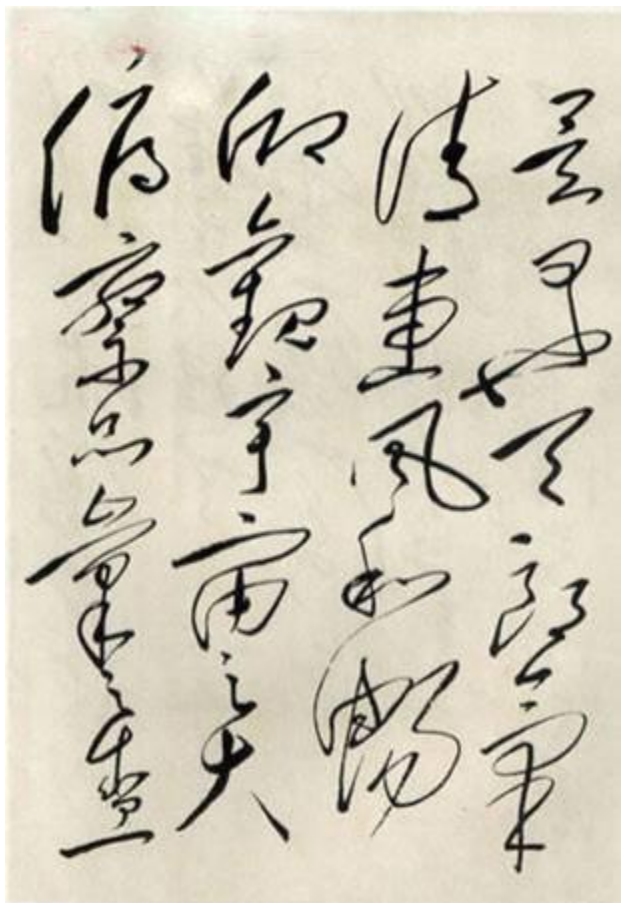 是日也天朗氣
清惠風和暢
仰觀宇宙之大
俯察品彙之盛